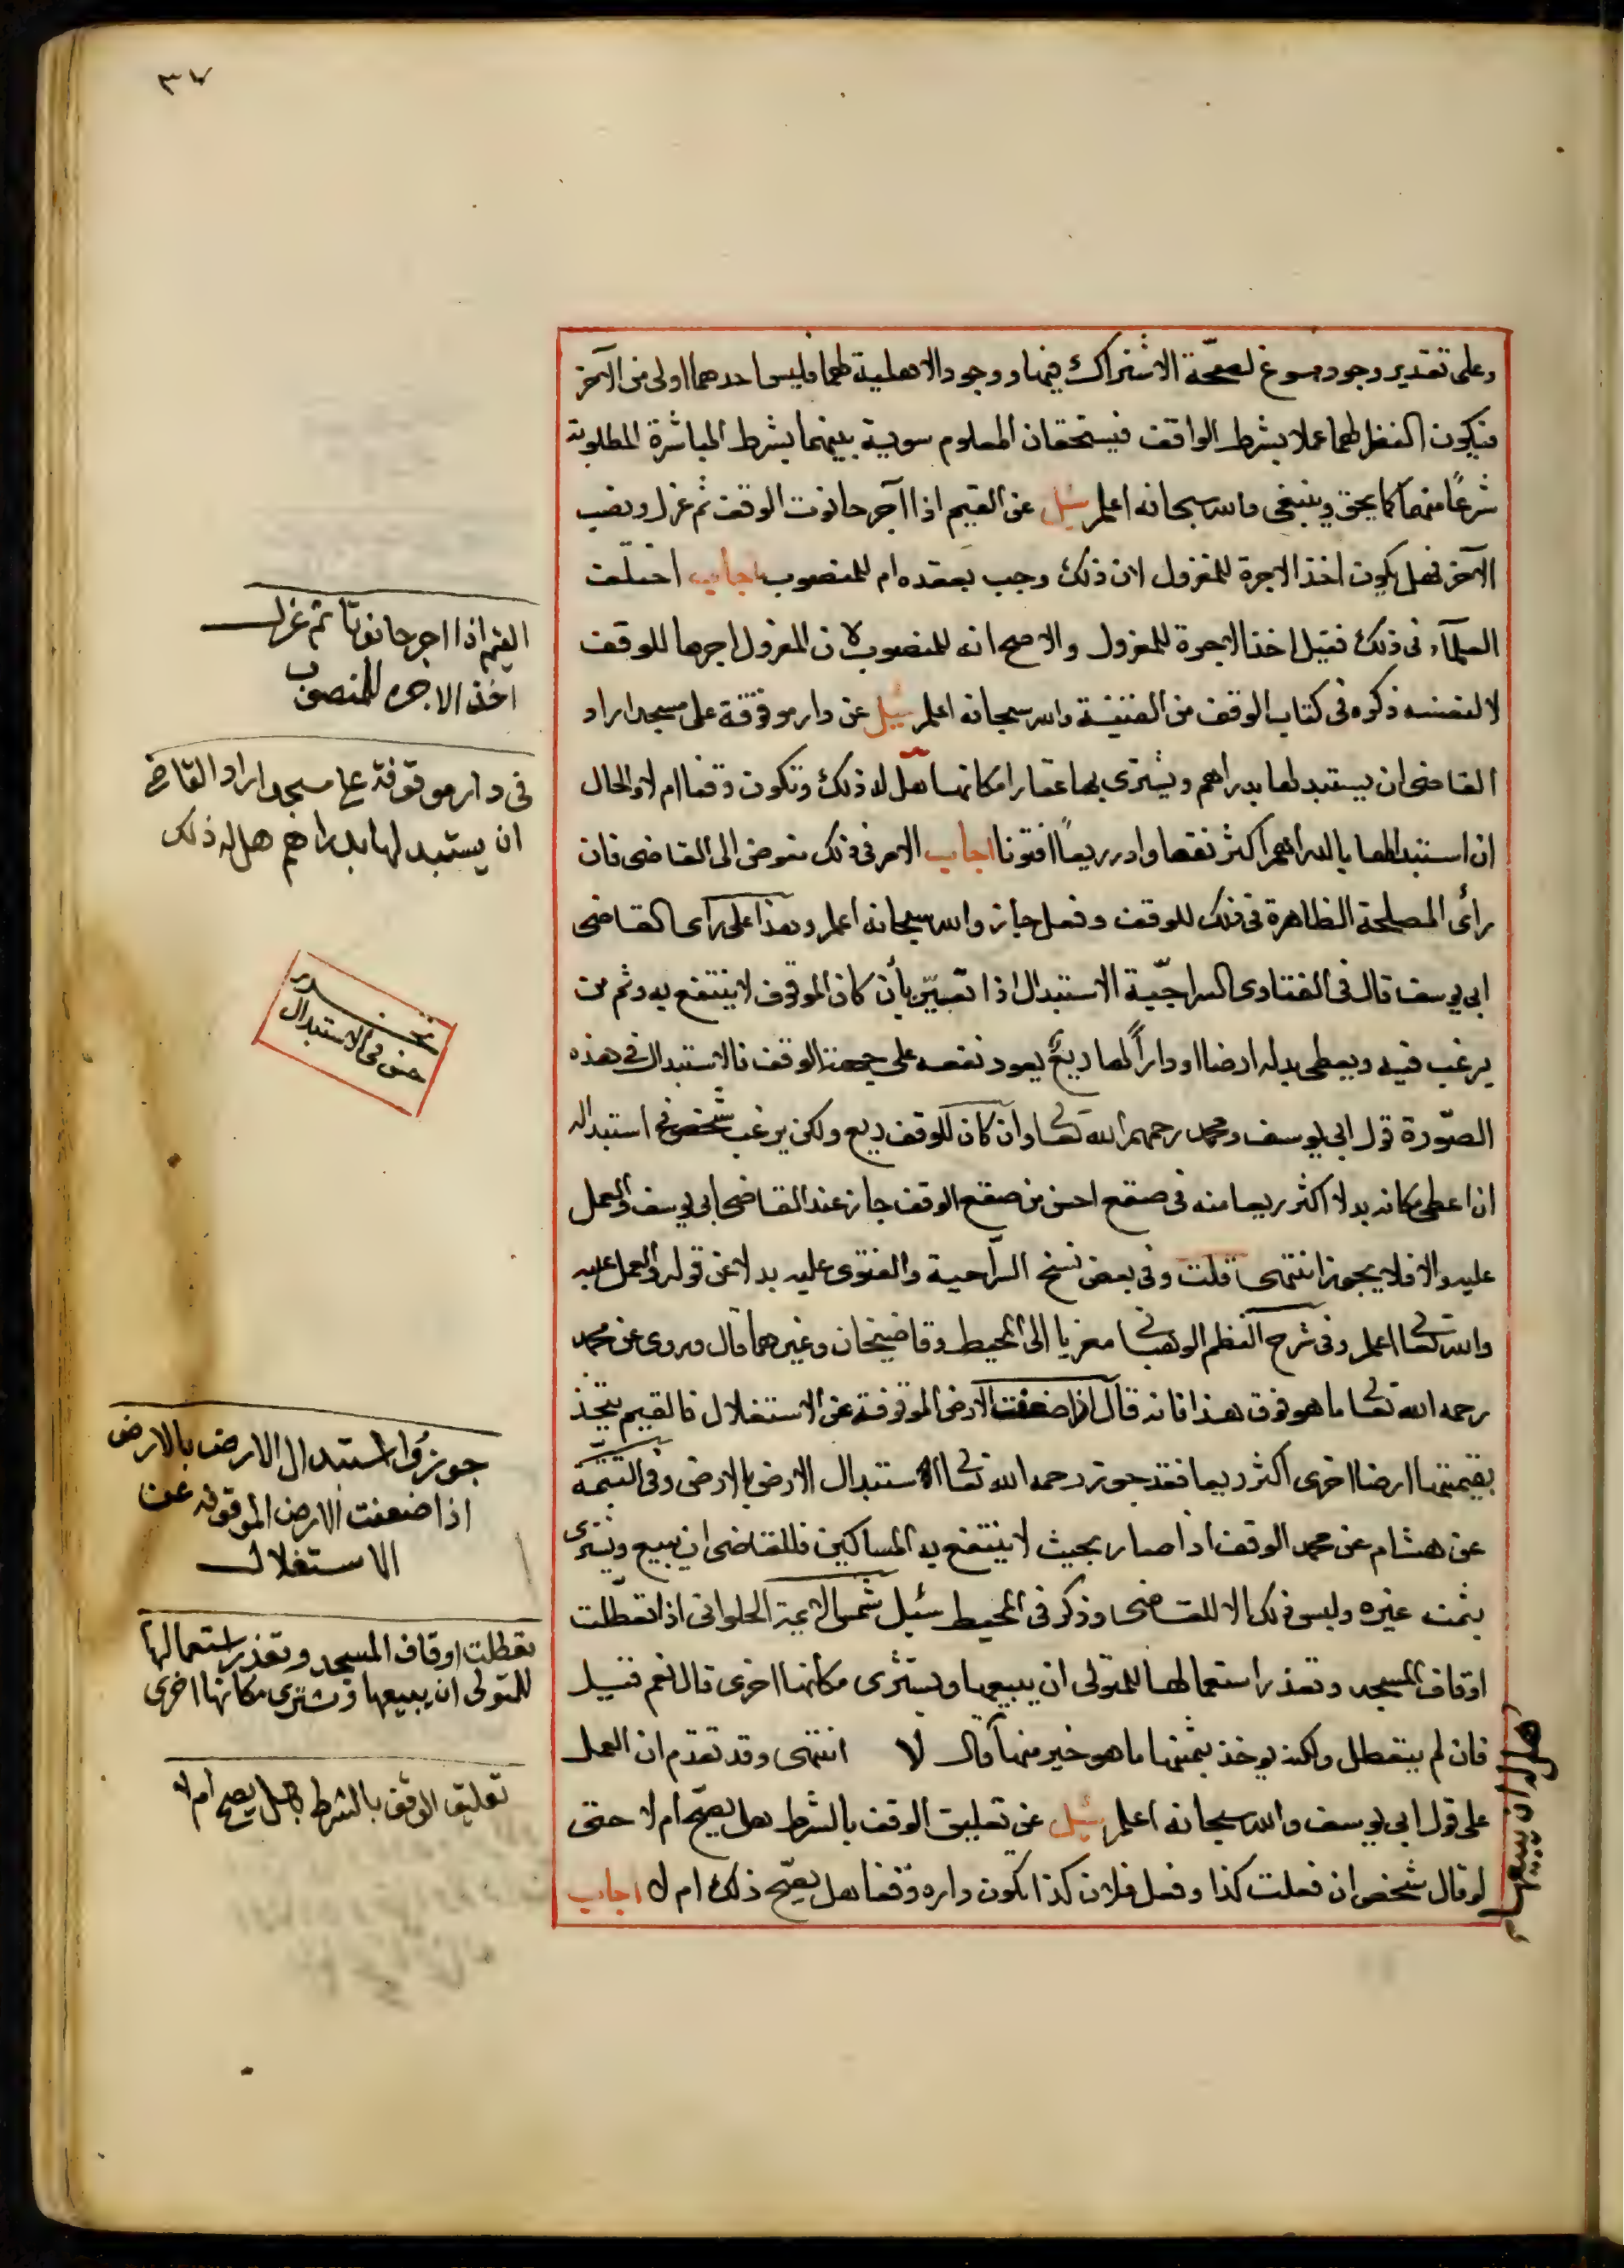 ٣٧
وعلى تقدير وجود مسوغ لصحّة الاشتراك فيها ووجود الاهلية لهما فليس احدهما اولى من الآخر
فيكون النظر لهما عملا بشرط الواقف فيستحقان المعلوم سوية بينهما بشرط المباشرة المطلوبة
شرعًا منهما كما يحق وينبغي والله سبحانه اعلم سئل عن القيم اذا آجر حانوت الوقف ثم عزل ونصب
الآخر فهل يكون اخذ الاجرة للمعزول لان ذلك وجب بعقده ام للمنصوب اجاب اختلفت
العلمآء في ذلك فقيل اخذ الاجرة للمعزول والاصح انه للمنصوب لان المعزول اجرها للوقف
لا لنفسه ذكره في كتاب الوقف من القنية والله سبحانه اعلم سئل عن دار موقوفة على مسجد اراد
القاضي ان يستبدلها بدراهم ويشترى بها عقارا مكانها هل له ذلك وتكون وقفا ام لا والحال
ان استبدالها بالدراهم اكثر نفعا وادر ريعًا افتونا اجاب الامر في ذلك مفوض الى القاضي فان
رأى المصلحة الظاهرة في ذلك للوقف وفعل جاز والله سبحانه اعلم وهذا على رأى القاضي
ابي يوسف قال في الفتاوى السراجيّة الاستبدال اذا تعيّن بأن كان الموقوف لا ينتفع به وثم من
يرغب فيه ويعطى بدله ارضا او دارًا لها ريعٌ يعود نفعه على جهة الوقف فالاستبدال في هذه
الصّورة قول ابي يوسف ومحمد رحمهم الله تعالى وان كان للوقف ريع ولكن يرغب شخص في استبداله
ان اعطى مكانه بدلا اكثر ريعا منه في صقع احسن من صقع الوقف جاز عند القاضي ابي يوسف والعمل
عليه والا فلا يجوز انتهى قلت وفي بعض نسخ السّراجية والفتوى عليه بدلا عن قوله والعمل عليه
والله تعالى اعلم وفي شرح النظم الوهباني معزيا الى المحيط وقاضيخان وغيرهما قال وروى عن محمد
رحمه الله تعالى ما هو فوق هذا فانه قال اذا ضعفت الارض الموقوفة عن الاستغلال فالقيم يتخذ
بقيمتها ارضا اخرى اكثر ريعا فقد جوز رحمه الله تعالى الاستبدال الارض بالارض وفي التتمّة
عن هشام عن محمد الوقف اذا صار بحيث لا ينتفع به المساكين فللقاضي ان يبيع ويشترى
بثمنه غيره وليس ذلك الا للقاضي وذكر في المحيط سئل شمس الائمة الحلواني اذا تعطّلت
اوقاف المسجد وتعذر استعمالها للمتولى ان يبيعها ويشترى مكانها اخرى قال نعم فقيل
فان لم يتعطل ولكن يوخذ بثمنها ما هو خير منها قال لا انتهى وقد تقدم ان العمل
على قول ابي يوسف والله سبحانه اعلم سئل عن تعليق الوقف بالشرط هل يصحّ ام لا حتى
لو قال شخص ان فعلت كذا وفعل فلان كذا تكون داره وقفا هل يصّح ذلك ام لا اجاب
القيم اذا اجر حانوتا ثم عزل
اخذ الاجره للمنصوب
في دار موقوفة على مسجد اراد القاضي
ان يستبدلها بدراهم هل له ذلك
في الاستبدال
جوزوا استبدال الارض بالارض
اذا ضعفت الارض الموقوفه عن
الاستغلال
تعطلت اوقاف المسجد وتعذر استعمالها
للمتولى ان يبيعها ويشترى مكانها اخرى
تعليق الوقف بالشرط هل يصح ام لا
هل له ان يبيعها